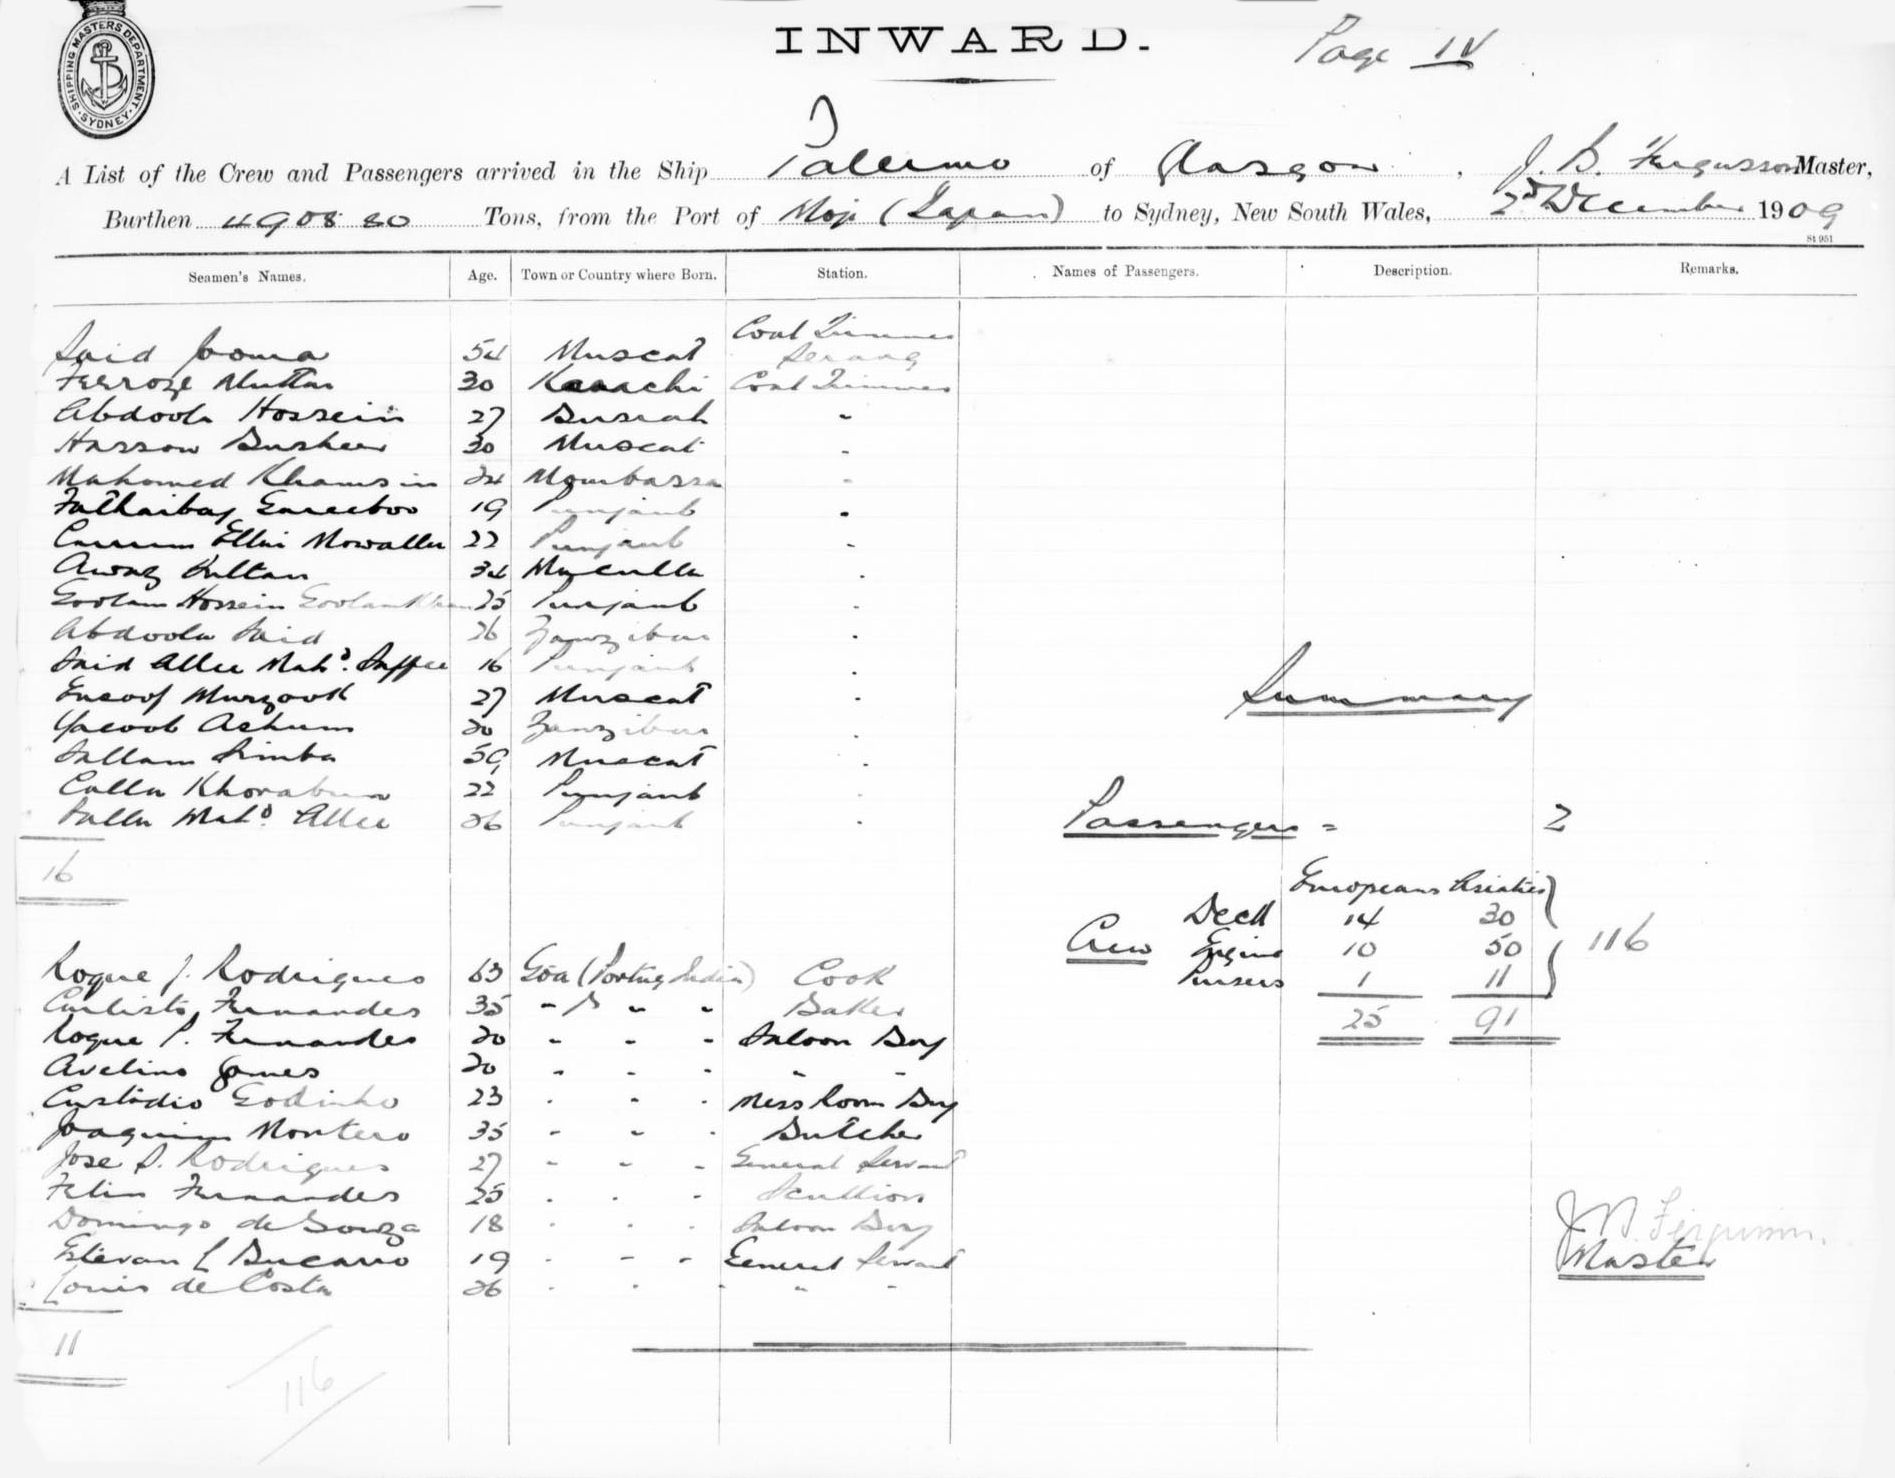 SHIPPING MASTERS DEPARTMENT. SYDNEY.
INWARD.
Page IV
A List of the Crew and Passengers arrived in the Ship Palermo of Glasgow, J. B. Fergusson Master,
Burthen 4908 80 Tons, from the Port of Moji (Japan) to Sydney, New South Wales, 2d December 1909
St 951
Seamen's Names. Age. Town or Country where Born. Station. Names of Passengers. Description. Remarks.
Coal Trimmer
Said Jooma 54 Muscat Serang
Feeroze Muttar 30 Karachi Coal Trimmer
Abdoola Hossein 27 Busrah "
Hassan Busheer 30 Muscat "
Mahomed Khamsin 24 Mombassa "
Fathaiboy 19 Punjaub "
Ellui Mowalla 22 Punjaub "
Awaz Sultan 34 Maculla "
Goolam Hossein Goolam Khan 25 Punjaub "
Abdoola Said 26 Zanzibar "
Said Allee Mahd. Suffee 16 Punjaub "
Esoof Murzook 27 Muscat "
Yacoob Achum 30 Zanzibar "
Sallam Simba 59 Muscat "
Calla 22 Punjaub "
Salla Mahd. Allee 26 Punjaub "
16
Summary
Passengers = 2
Europeans Asiatics
Deck 14 30
Crew Engine 10 50 116
Pursers 1 11
25 91
Roque J. Rodrigues 63 Goa (Portug India) Cook
Fernandes 35 " D " " Baker
Roque P. Fernandes 20 " " " Saloon Boy
Avelino Gomes 20 " " " " "
Custodio Godinho 23 " " " Mess Room Boy
Joaquim Montero 35 " " " Butcher
Jose S. Rodrigues 27 " " " General Servant
Felix Fernandes 25 " " " Scullion
Domingo de Souza 18 " " " Saloon Boy
Estevan L Bucarro 19 " " " General Servant
Louis de Costa 26 " " " " "
11
116
J B Fergusson
Master